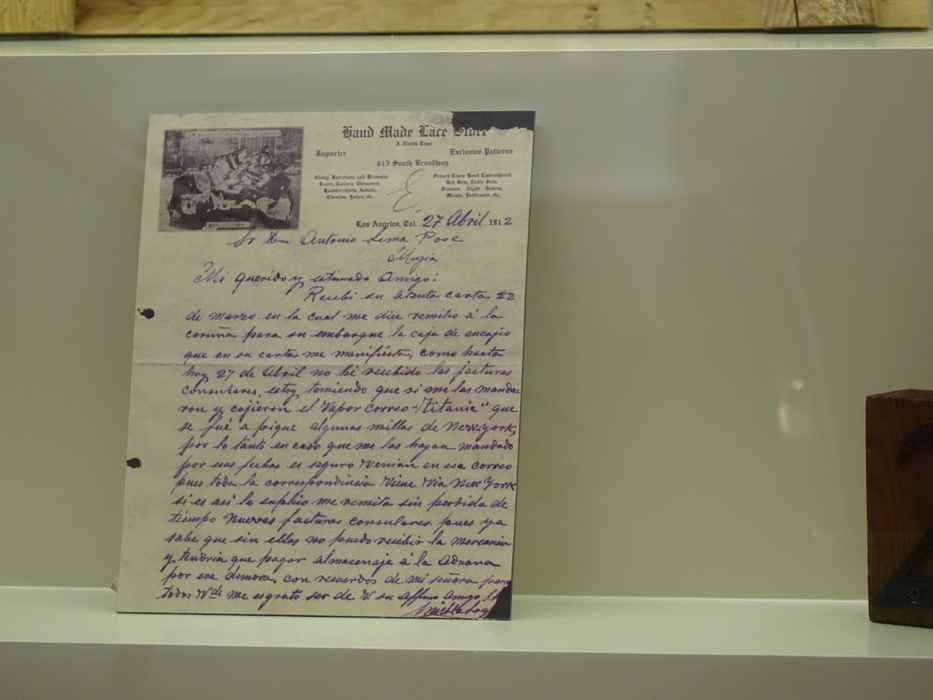 Hand Made Lace Store
Importer
Exclusive Patterns
613 South Broadway
Cluny, Barcelona and Brussels
Laces, Collars,
Handkerchiefs, Jabots,
Yokes, etc.
French Linen Hand Embroidered
Bed Sets, Table Sets,
Dresses, Night Robes,
Waists, Petticoats, etc.
Los Angeles, Cal. 27 Abril 1912
Sr Dn Antonio Lema Pose
Mugia
Mi querido y estimado Amigo:
Recibi su atenta carta 22
de marzo en la cual me dice remitio á la
coruña para su embarque la caja de encajes
que en su carta me manifiesta, como hasta
hoy 27 de Abril no hé recibido las facturas
consulares, estoy temiendo que si me las manda-
ron y cojieron el Vapor Correo "Titanic" que
se fué a pique algunas millas de New York,
por lo tanto en caso que me las hayan mandado
por esas fechas es seguro venian en esa correo
pues toda la correspondincia viene via New York
si es asi le suplico me remita sin perdida de
tiempo nuevas facturas consulares pues ya
sabe que sin ellas no puedo recibir la mercancia
y tendria que pagar almacenaje á la Aduana
por esa demora, con recuerdos de mi señora para
todos Vds me es grato ser de V su affmo amigo